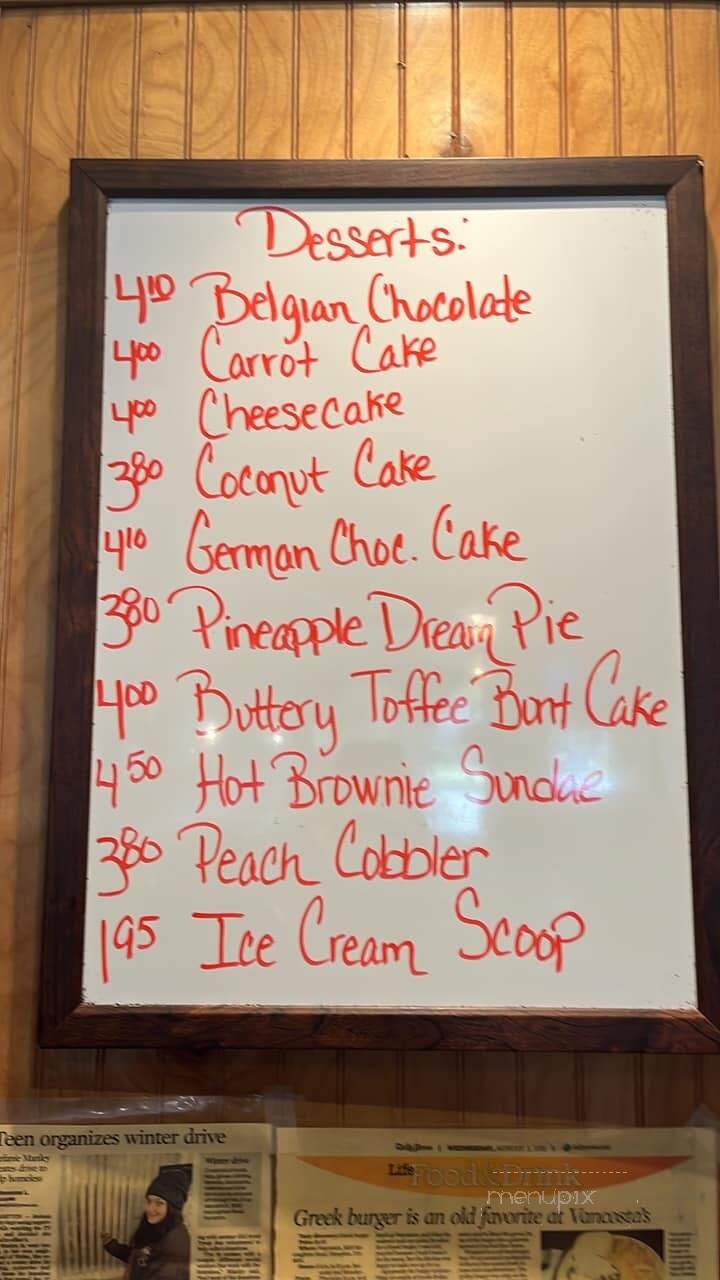 Desserts:
410 Belgian Chocolate
400 Carrot Cake
400 Cheesecake
380 Coconut Cake
410 German Choc. Cake
380 Pineapple Dream Pie
400 Buttery Toffee Bunt Cake
450 Hot Brownie Sundae
380 Peach Cobbler
195 Ice Cream Scoop
Teen organizes winter drive
Winter drive
Life Food & Drink
menupix
Greek burger is an old favorite at Vancosta's